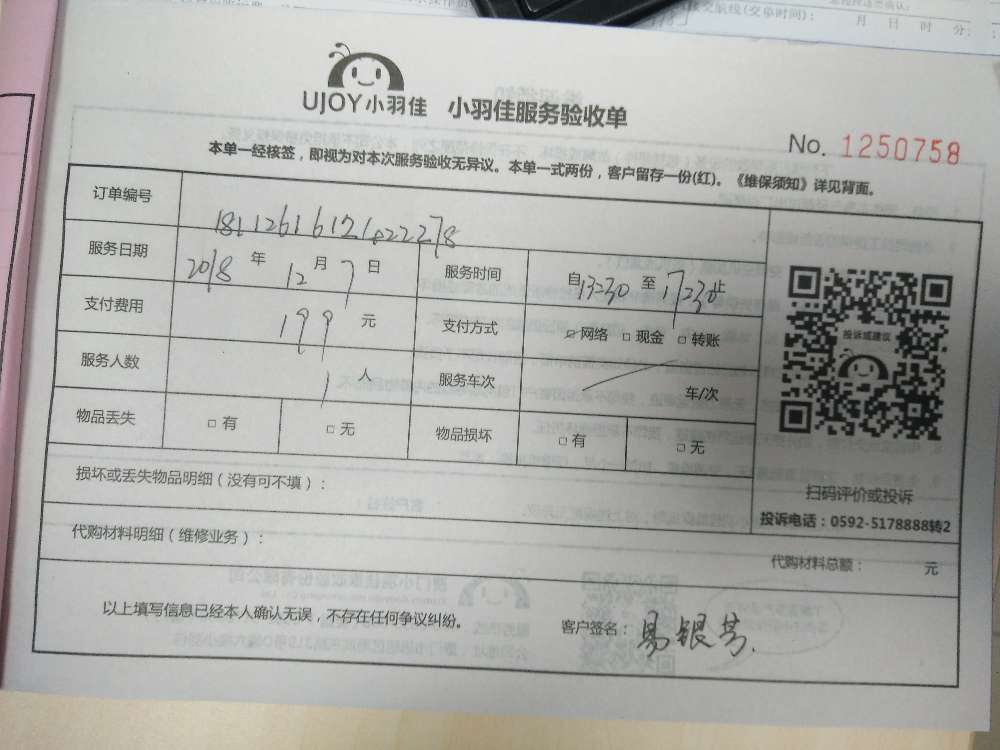 接线(交单时间): 月 日 时 分:
UJOY小羽佳 小羽佳服务验收单
No. 1250758
本单一经核签，即视为对本次服务验收无异议。本单一式两份，客户留存一份(红)。《维保须知》详见背面。
订单编号
服务日期 2018 年 12 月 7 日 服务时间 自13:30 至17:30止
支付费用 199 元 支付方式 □ 网络 □ 现金 □ 转账
服务人数 1 人 服务车次 车/次
物品丢失 □ 有 □ 无 物品损坏 □ 有 □ 无
投诉或建议
扫码评价或投诉
投诉电话：0592-5178888转2
损坏或丢失物品明细（没有可不填）：
代购材料明细（维修业务）：
代购材料总额： 元
以上填写信息已经本人确认无误，不存在任何争议纠纷。 客户签名：易银芳.